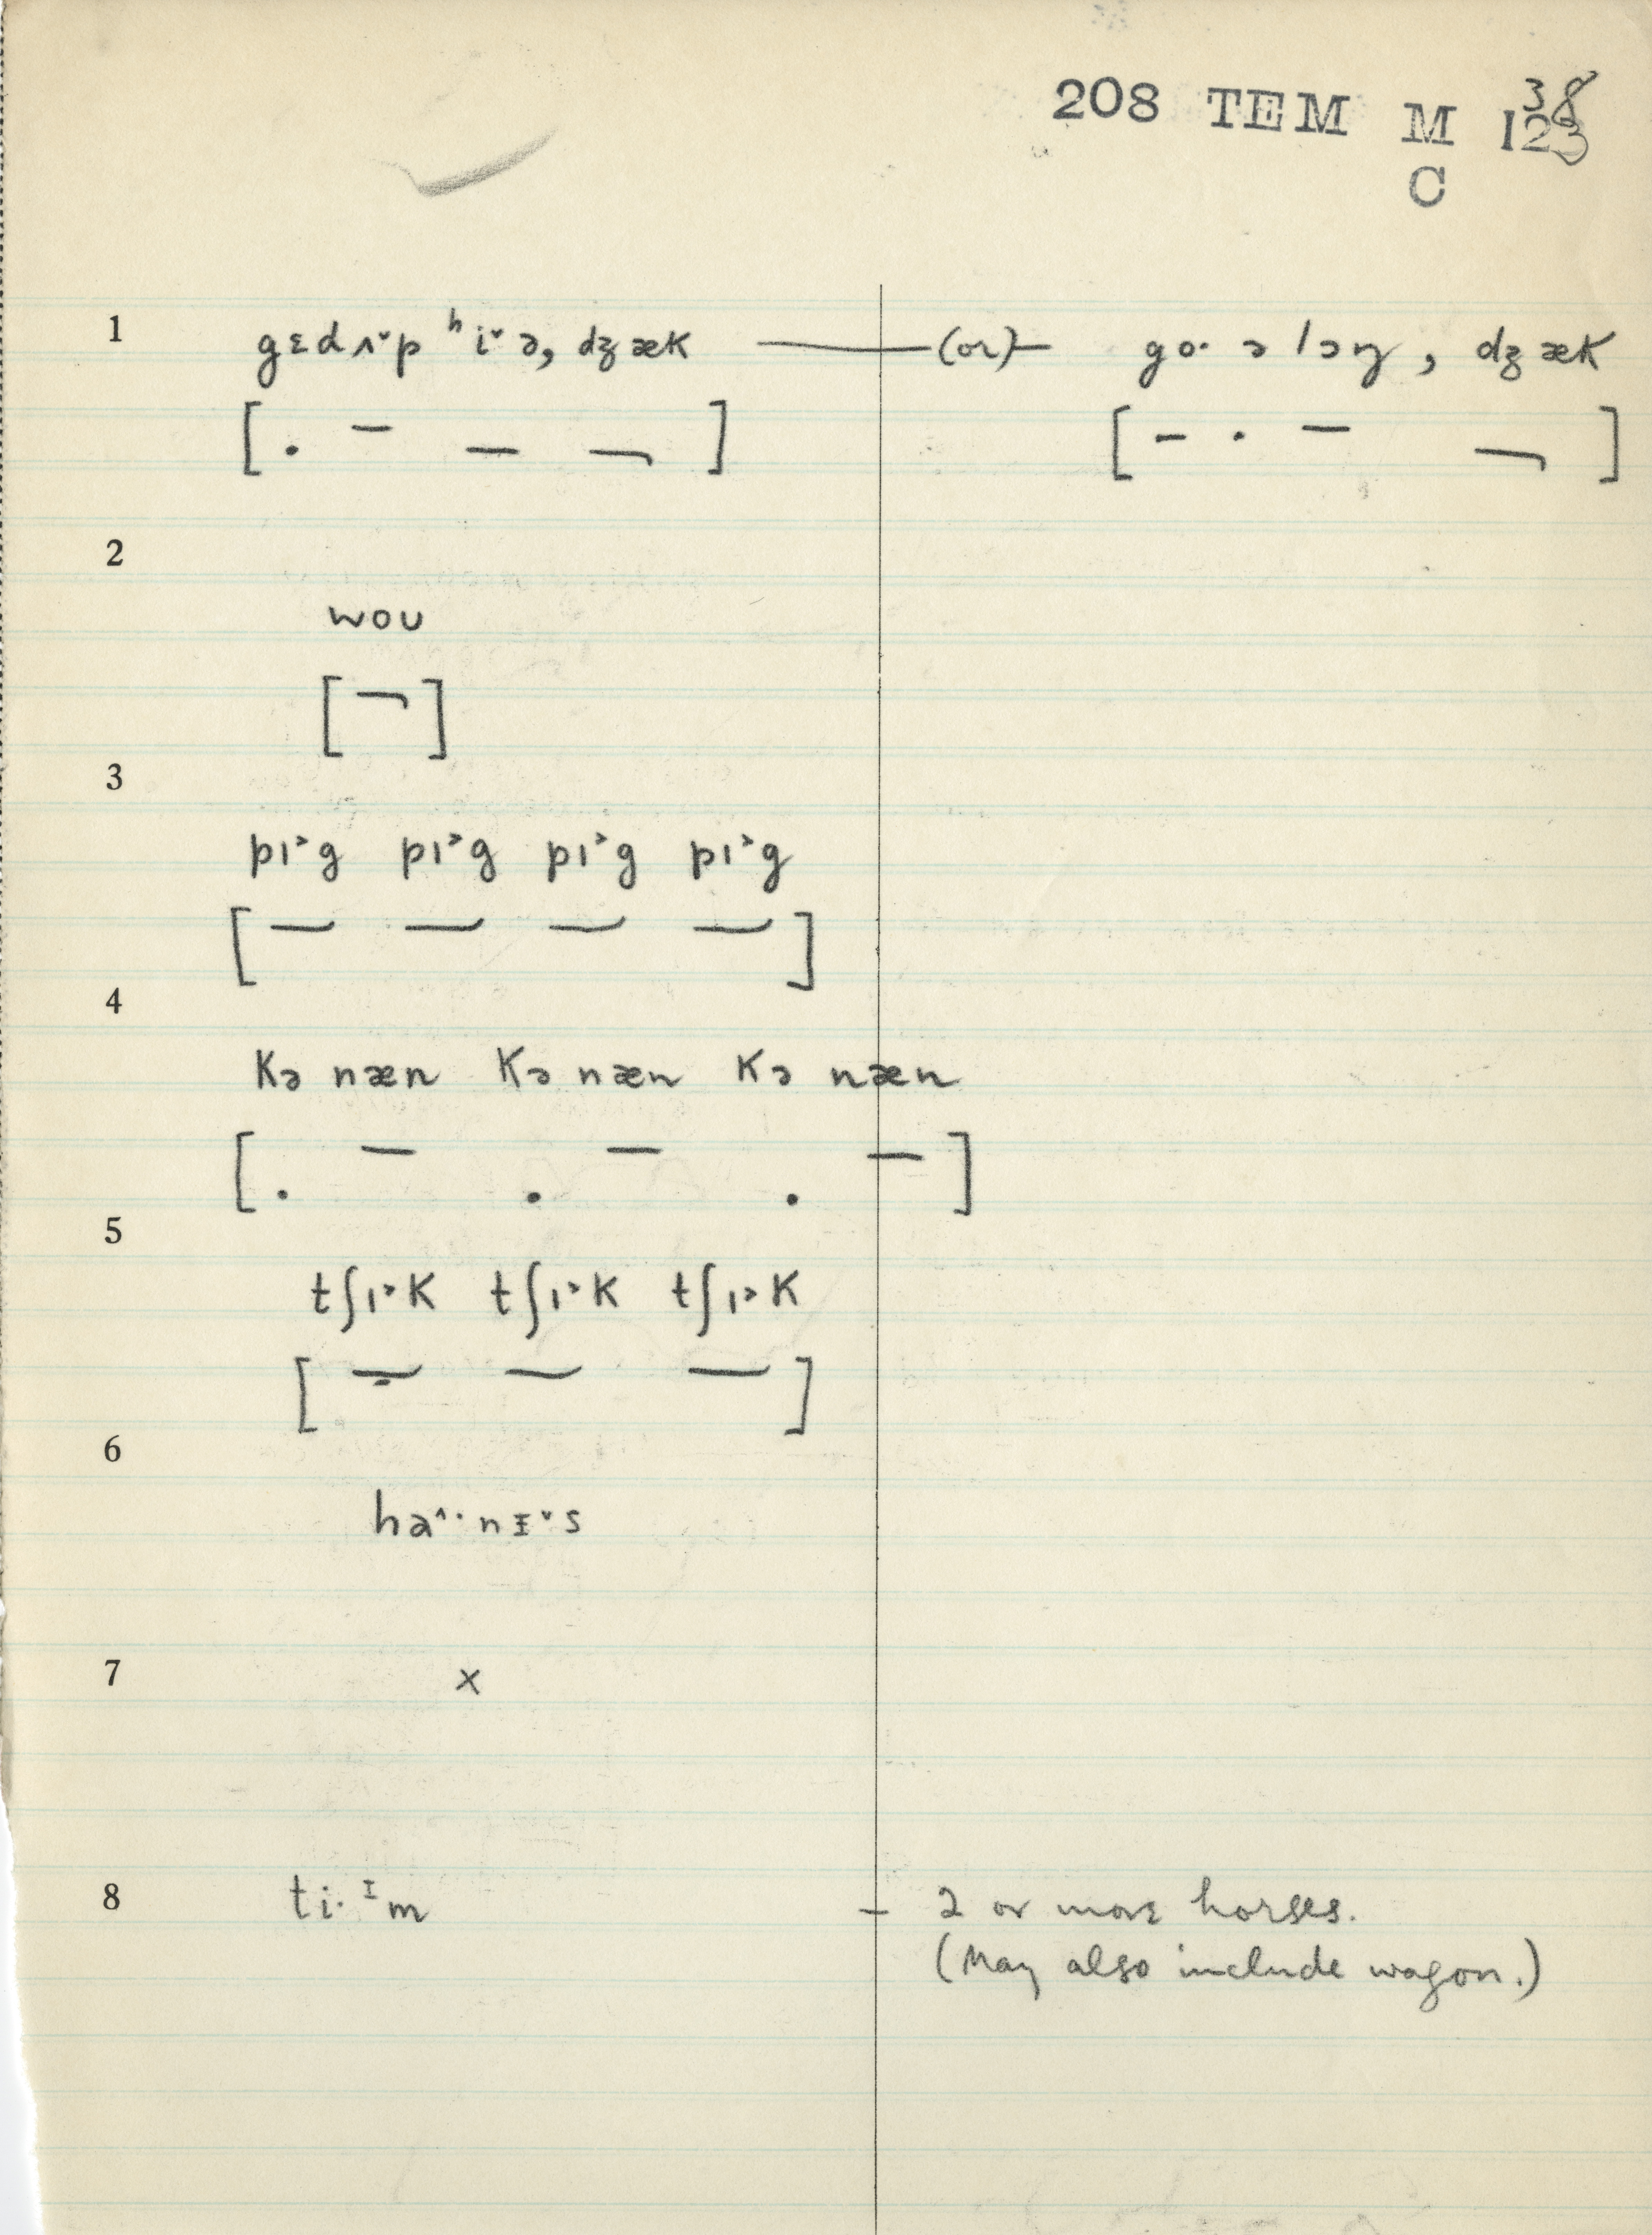 208 TEM M 123
38
C
1 gɛdʌ˅p ʰi˅ə, dʒæk — (or) — go· ə lɔŋ, dʒæk
2
wou
3
pɪ˃g pɪ˃g pɪ˃g pɪ˃g
4
kə næn kə næn kə næn
5
tʃɪ˃k tʃɪ˃k tʃɪ˃k
6
ha˄·nɪ˅s
7 x
8 ti·ᶦm – 2 or more horses.
(May also include wagon.)